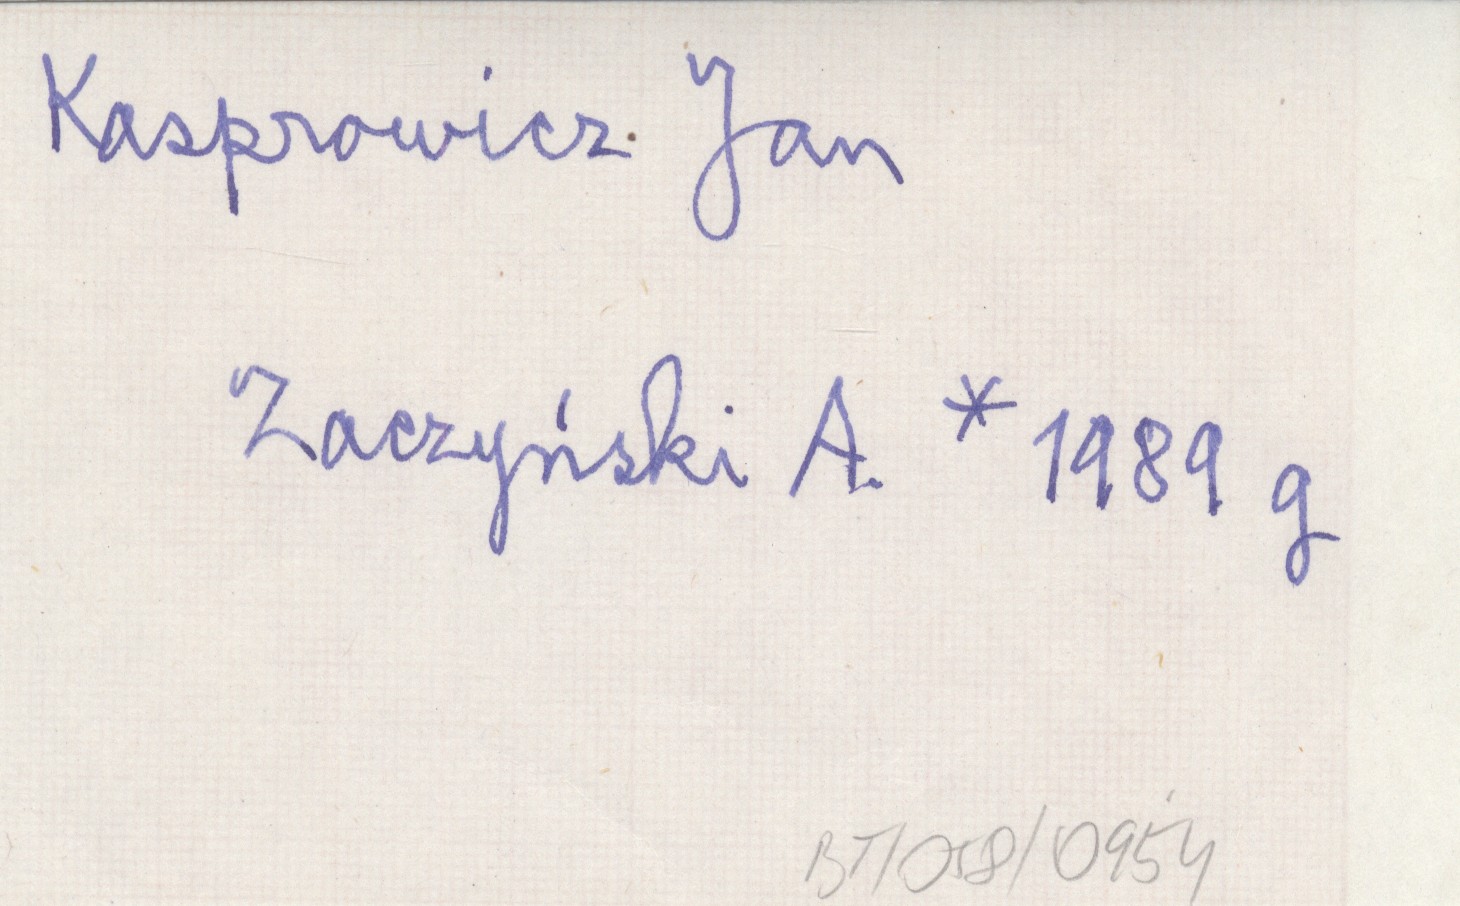 Kasprowicz Jan
Zaczyński A. * 1989 g
BT/058/0954